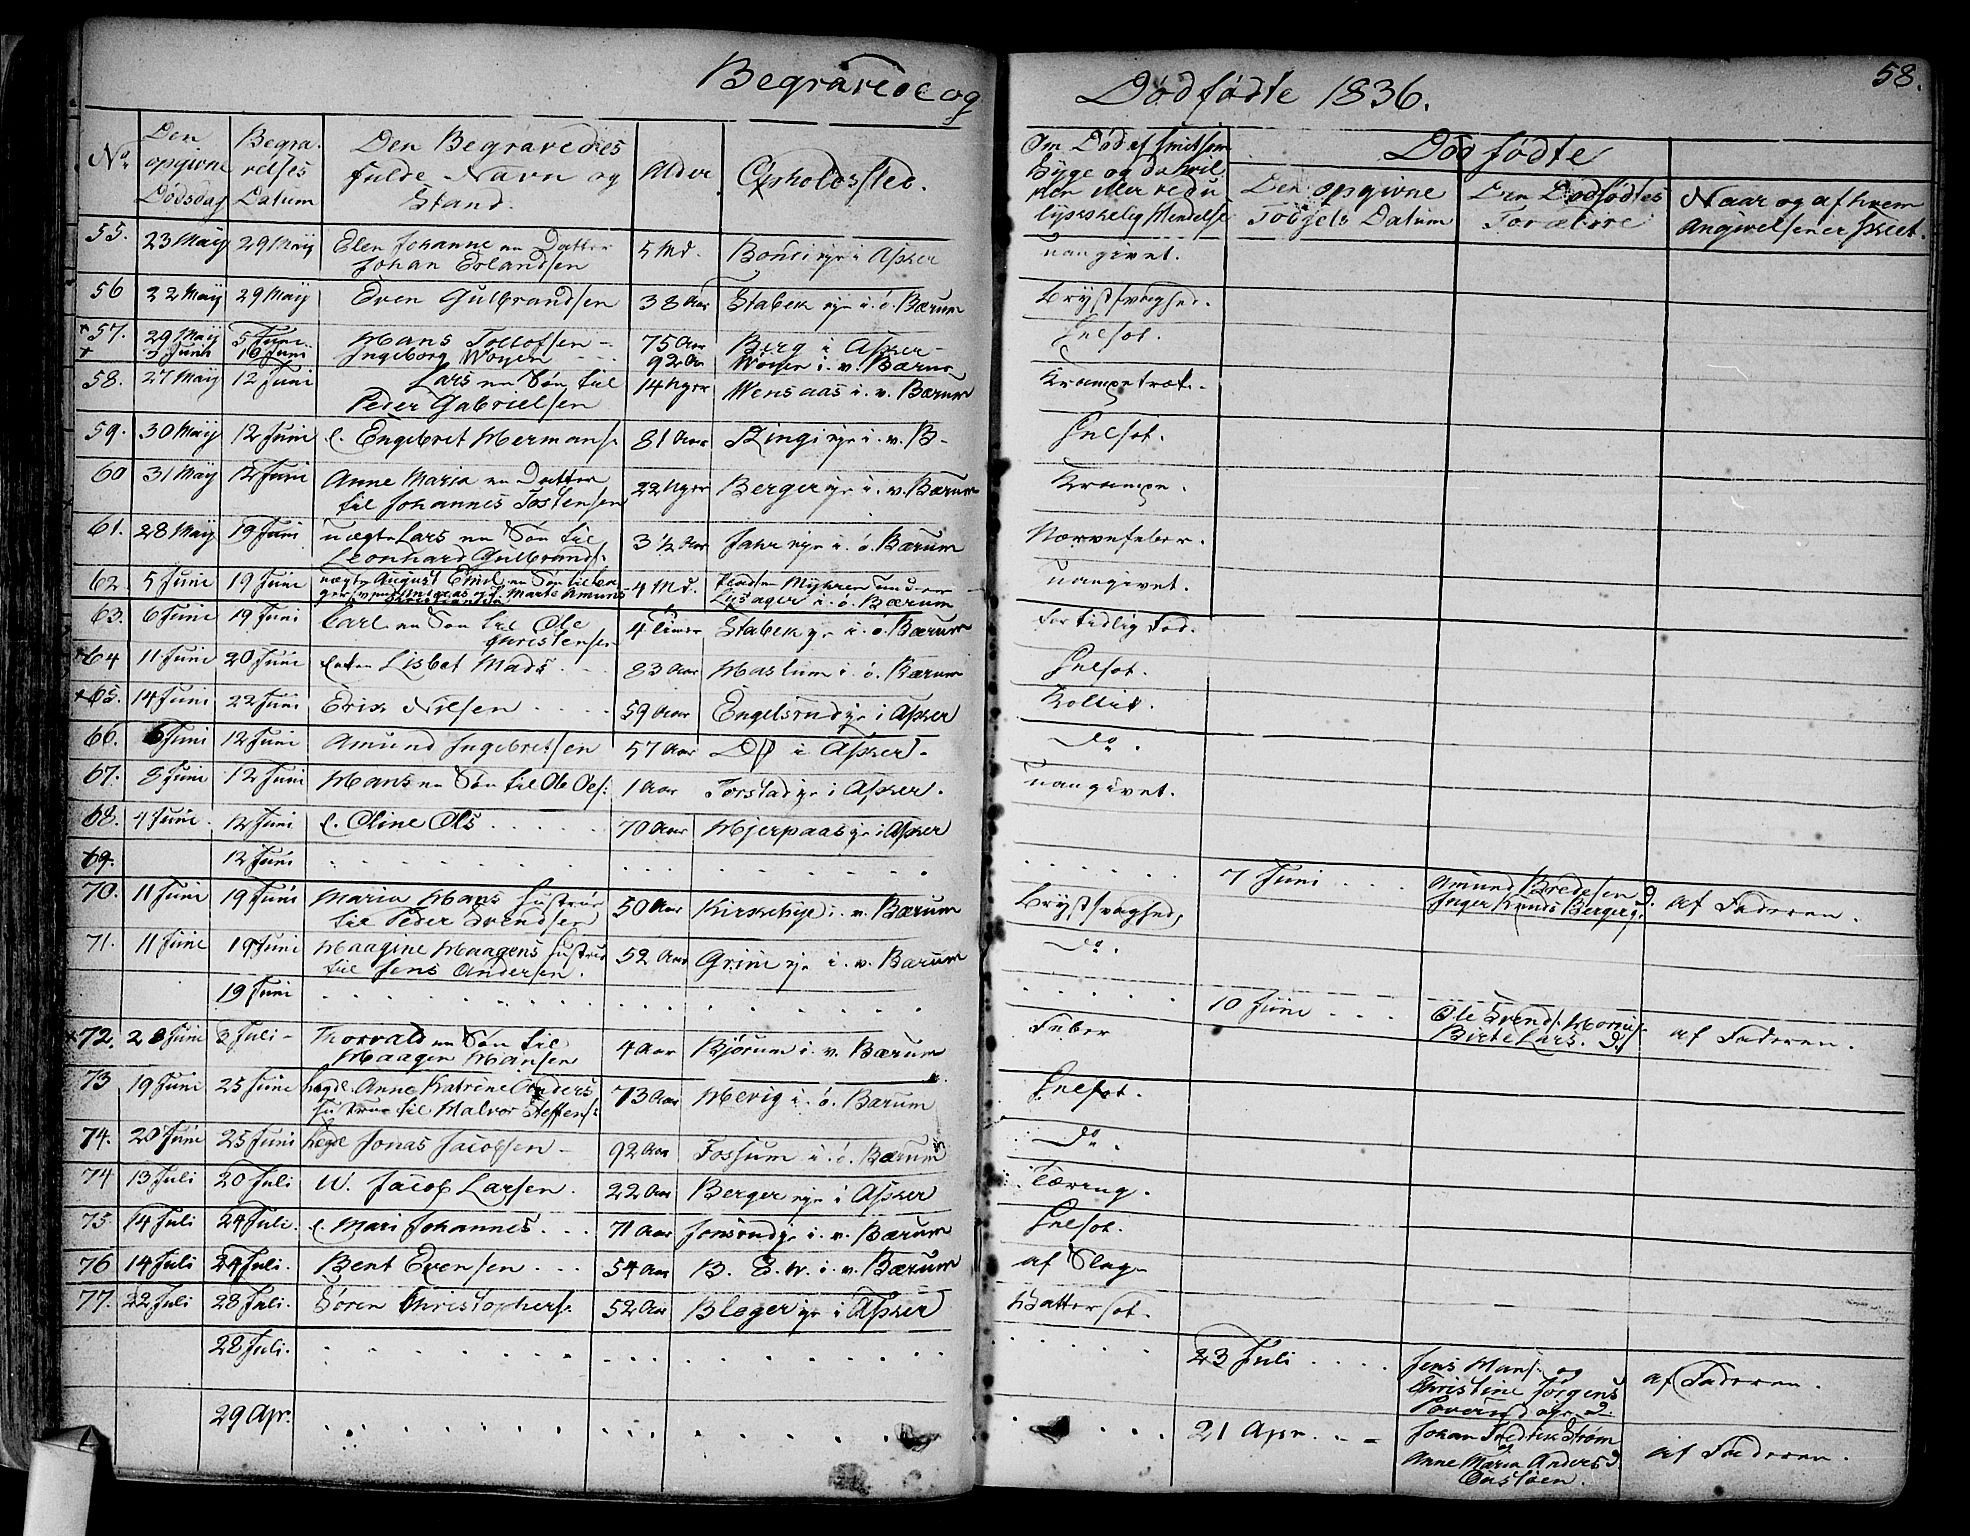 Begravede og Dødfødte 1836. 58.
No. Den opgivne Dødsdag Begravelses Datum Den Begravedes fulde Navn og Stand. Alder Opholdssted. Om Død af smitsom Syge og Dødfødte
Den opgivne Fødsels Datum Den Dødfødtes Forældre Naar og af hvem Angivelsen er skeet.
55. 23 Maij 29 Maij Elen Johanne en Datter 5 Md. i Asker uangivet.
Johan Erlandsen
56 22 Maij 29 Maij Even Gulbrandsen 38 Aar Stabek eje i. ø. Bærum Brystsvaghed.
57. 29 Maij 5 Juni Hans Tollofsen 75 Aar Berg i Asker
+ 3 Juni 10 Juni Ingeborg Wøyen 92 Aar Wøyen i. v. Bærum
58. 27 Maij 12 Juni Lars en Søn til 14 Uger Wensaas i. v. Bærum
Peder Gabrielsen
59. 30 Maij 12 Juni E. Engebret Hermans: 81 Aar Ringi eje i. v. B-
60 31 Maij 12 Juni Anne Maria en Datter 22 Uger Berger eje i. v. Bærum Krampe.
til Johannes Tostensen
61. 28 Maij 19 Juni uægte Lars en Søn til 3 1/2 Aar Jahr eje i. ø. Bærum Nervefeber.
Leonhard Gulbrands:
62. 5 Juni 19 Juni uægte August Emil en Søn til 4 Md. uangivet.
Marte Amunds i. ø. Bærum
63. 6 Juni 19 Juni Carl en Søn til Ole 4 Timer Stabek eje i. ø. Bærum for tidlig Fød.
Christensen
+64 11 Juni 20 Juni Lisbet Mads 83 Aar Haslum i. ø. Bærum
+65. 14 Juni 22 Juni Erik Nilsen 59 Aar Engelsrud eje i Asker Kollik.
66. 6 Juni 12 Juni Amund Ingebretsen 57 Aar Do i Asker. Do.
67. 8 Juni 12 Juni Hans en Søn til Ole Ols: 1 Aar Torstad eje i Asker. uangivet.
68. 4 Juni 12 Juni E. Oline Ols 70 Aar Hjerpaas eje i Asker
69. 12 Juni 7 Juni Amund Bredesen og af Faderen.
Inger Knuds Berger
70. 11 Juni 19 Juni Maria Hans Hustrue 50 Aar Kirkebye i. v. Bærum Brystsvaghed,
til Peder Svendsen
71. 11 Juni 19 Juni Haagine Haagens Hustrue 52 Aar Grini eje i. v. Bærum Do.
til Jens Andersen.
19 Juni 10 Juni Ole Svends: af Faderen.
Birte Lars.
+72. 2 Juli Thorvald en Søn til 4 Aar Bjørum i. v. Bærum Feber
Haagen Hansen
73 19 Juni 25 Juni Anne Katrine Anders 73 Aar Hevig i. ø. Bærum
Hustrue til Halvor Steffens:
74. 20 Juni 25 Juni Jonas Jacobsen 92 Aar Fossum i. ø. Bærum Do.
74 13 Juli 20 Juli U. Jacob Larsen. 22 Aar Berger eje i Asker Tæring.
75 14 Juli 24 Juli. E. Mari Johannes 71 Aar Jonsrud eje i. v. Bærum
76 14 Juli 24 Juli. Bent Evensen 54 Aar B. E. W. i. v. Bærum af Slag
77. 22 Juli 28 Juli. Søren Christophers: 52 Aar Bleger eje i Asker Vattersot.
28 Juli. 23 Juli Jens Hans: og af Faderen.
Christine Jørgens
29 Apr. 21 Apr. Johan Fredrik Strøm af Faderen.
og Anne Maria Anders
Oustøen.